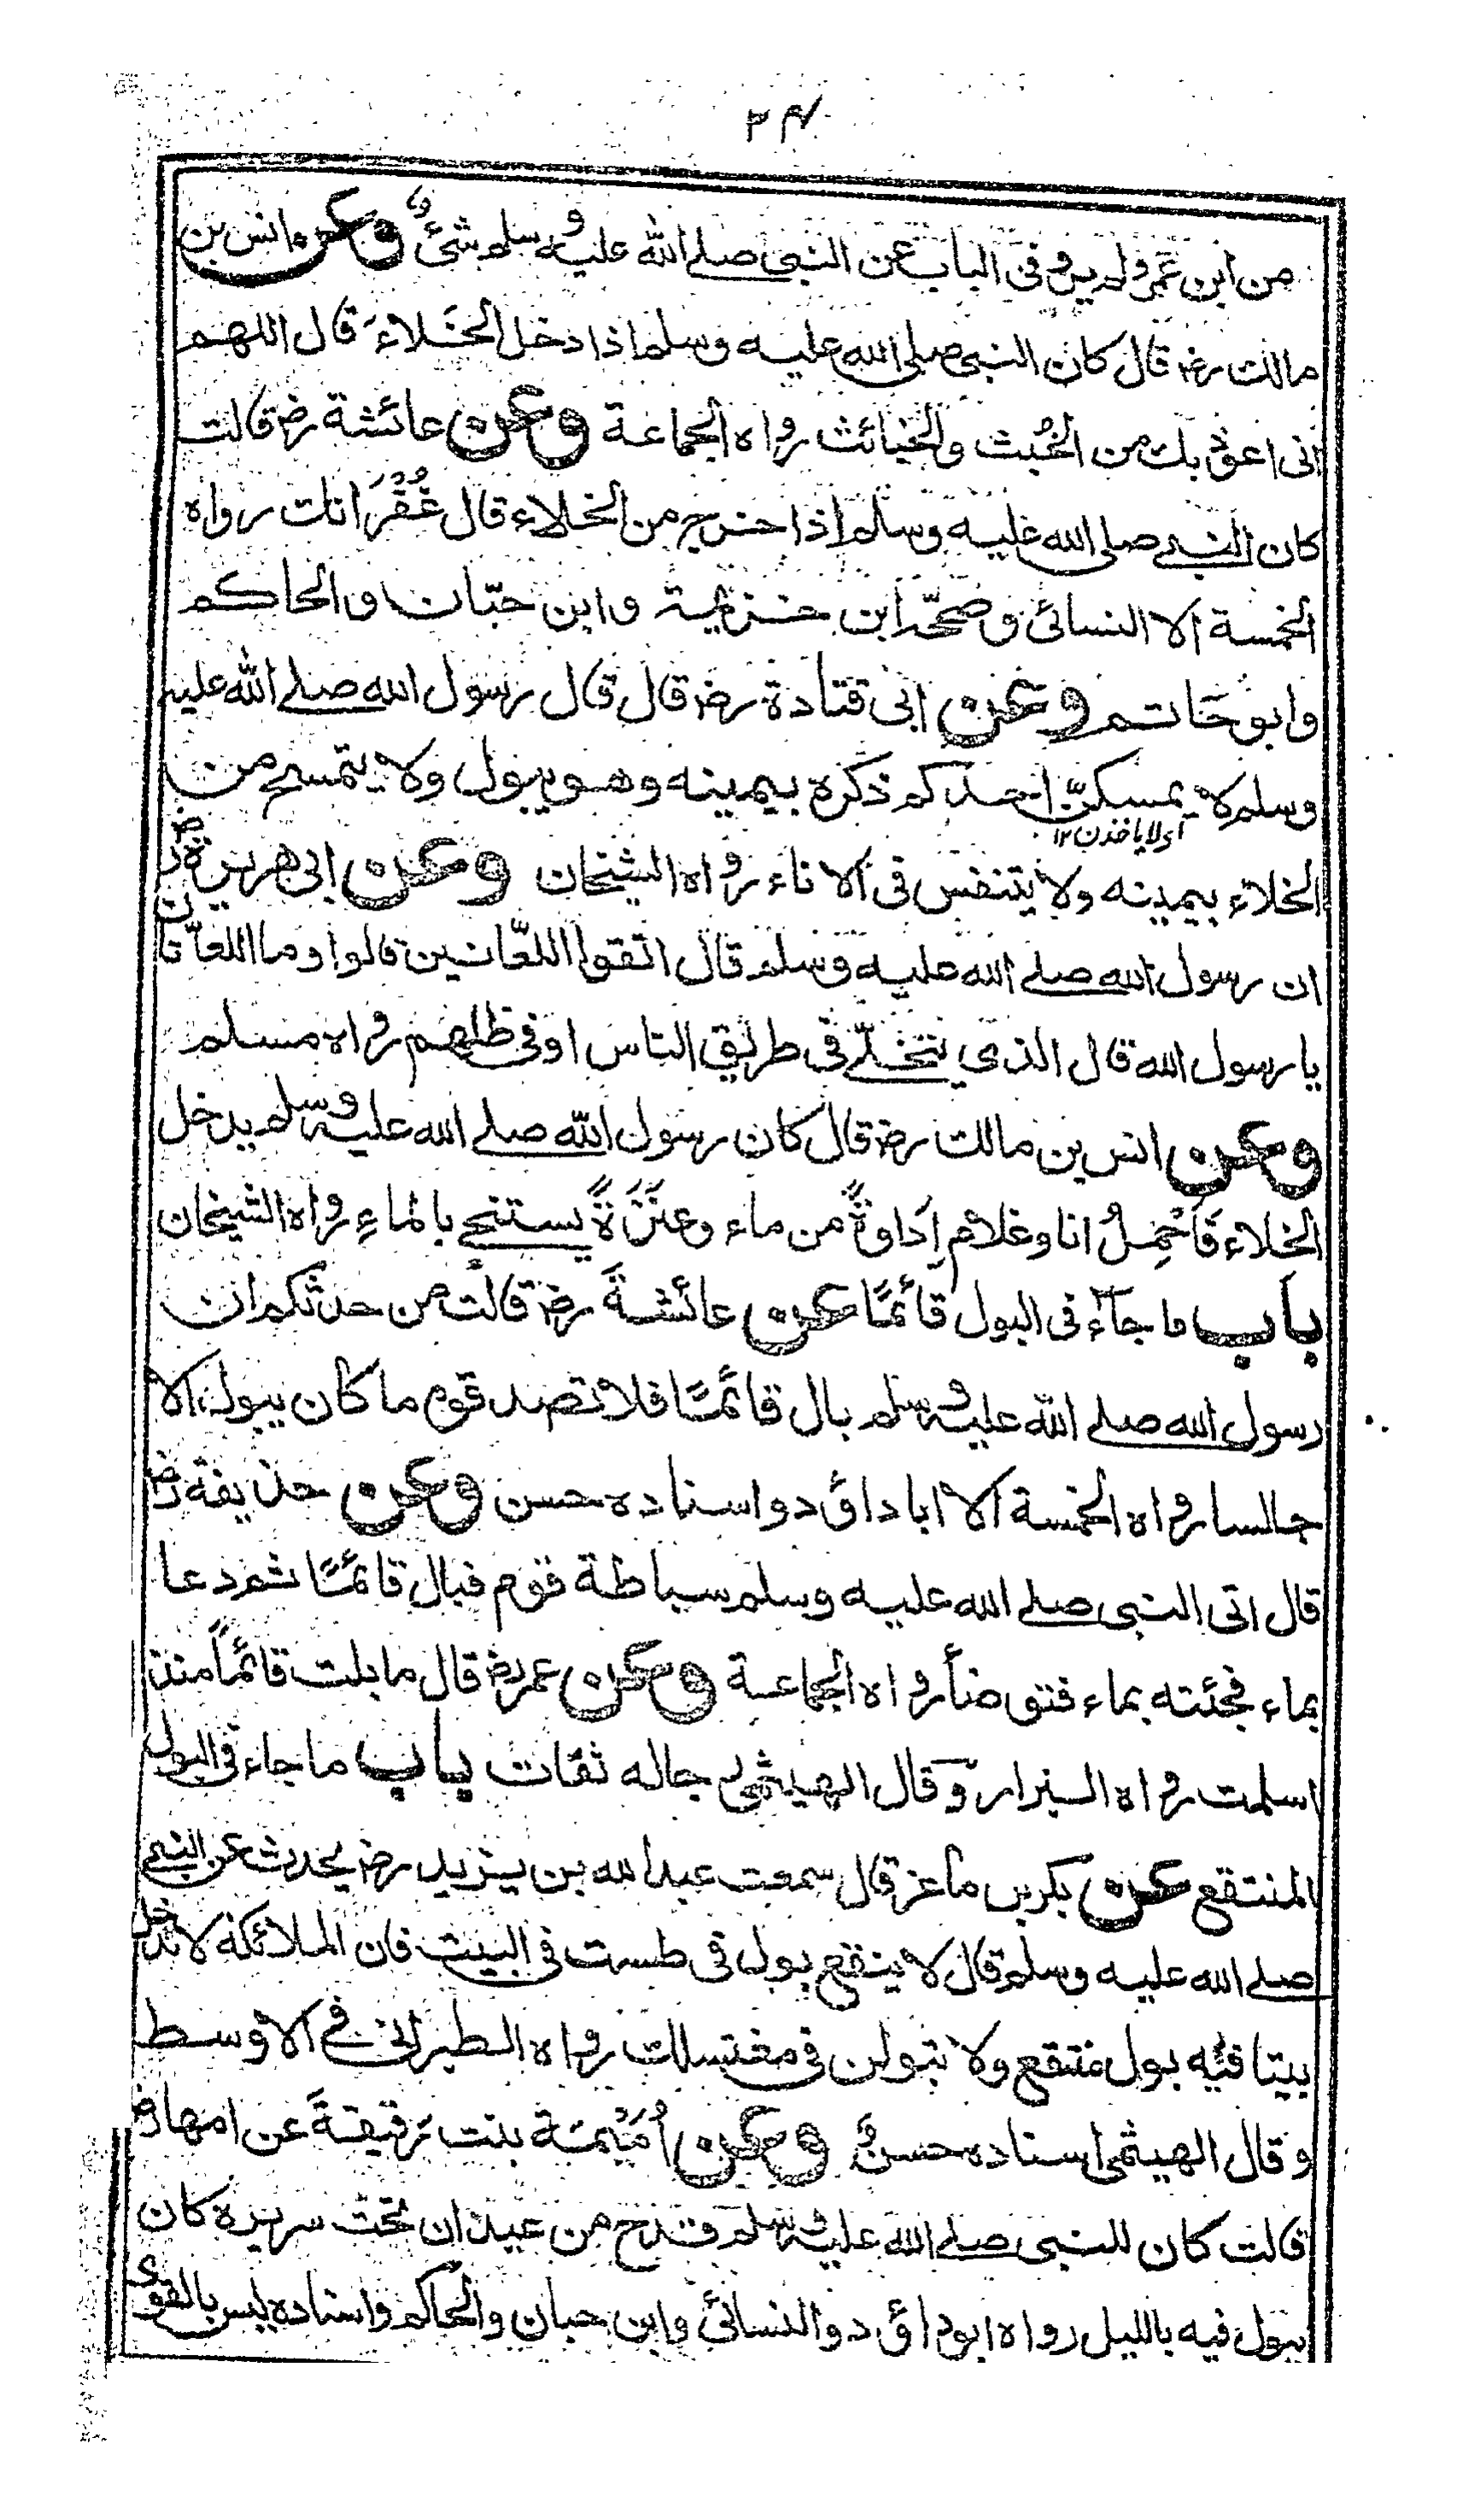 ٢٤
من ابن عمر ولم يرو فى الباب عن النبى صلے الله عليه وسلم شئ وعن انس بن
مالك رضـ قال كان النبى صلى الله عليه وسلم اذا دخل الخَلاءَ قال اللهم
انى اعوذ بك من الخُبث والخبائث رواه الجماعة وعن عائشة رضـ قالت
كان النبے صلى الله عليه وسلم اذا خرج من الخلاء قال غُفْرَانك رواه
الخمسة الا النسائى وصححّه ابن خزيمة وابن حبّان والحاكم
وابو حَاتم وعن ابى قتادة رضـ قال قال رسول الله صلے الله عليه
وسلم لا يمسكنّ احدكم ذكره بيمينه وهو يبول ولا يتمسح من
اى لا ياخذن ١٢
الخلاء بيمينه ولا يتنفس فى الاناء رواه الشيخان وعن ابى هريرة رضـ
ان رسول الله صلے الله عليه وسلم قال اتقوا اللعّانين قالوا وما اللعّانان
يا رسول الله قال الذي يتخلّے فى طريق الناس او فى ظلهم رواه مسلم
وعن انس بن مالك رضـ قال كان رسول الله صلے الله عليه وسلم يدخل
الخلاء فَاَحْمِلُ انا وغلام اِدَاوةً من ماء وعَنَزَةً يستنجے بالماءِ رواه الشيخان
باب ما جآء فى البول قائمًا عن عائشةَ رضـ قالت من حدثكم ان
رسول الله صلے الله عليه وسلم بال قائمًا فلا تصدقوه ما كان يبول الا
جالسا رواه الخمسة الا ابا داؤد واسناده حسن وعن حذيفة رضـ
قال اتى النبى صلے الله عليه وسلم سباطة قوم فبال قائمًا ثم دعا
بماء فجئته بماء فتوضأ رواه الجماعة وعن عمر رضـ قال ما بلت قائماً منذ
اسلمت رواه البزار وقال الهيثمى رجاله ثقات باب ما جاء فى البول
المنتقع عن بكر بن ماعز قال سمعت عبد الله بن يزيد رضـ يحدث عن النبے
صلے الله عليه وسلم قال لا ينقع بول فى طست فى البيت فان الملائكة لا تدخل
بيتا فيه بول منتقع ولا تبولن فى مغتسلك رواه الطبرانى فے الاوسط
وقال الهيثمى اسناده حسنٌ وعن اُمَيْمَة بنت رَقيقةَ عن امها رضـ
قالت كان للنبى صلے الله عليه وسلم قدح من عيدان تحت سريره كان
يبول فيه بالليل رواه ابو داؤد والنسائى وابن حبان والحاكم واسناده ليس بالقوى